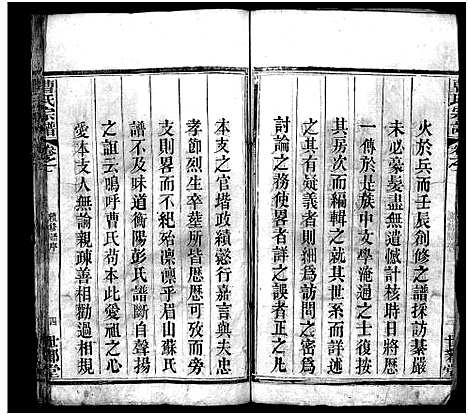 火於兵而壬辰創修之譜採訪綦嚴
未必豪髮盡無遺憾計核時日將歷
一傳於是族中文學淹過之士復按
其房次而編輯之就其世系而詳述
之其有疑義者則細為訪問之密為
討論之務使畧者詳之誤者正之凡
本支之官堦政績懿行嘉言與夫忠
孝節烈生卒塟所皆歷歷可攷而於
支則畧而不紀殆凜凜乎眉山蘇氏
譜不及味道衡陽彭氏譜斷自聲揚
之詛云嗚呼曹氏苟本此愛祖之心
愛本支人無諭親疎善相勸過相規
曹氏宗譜
卷之一
四